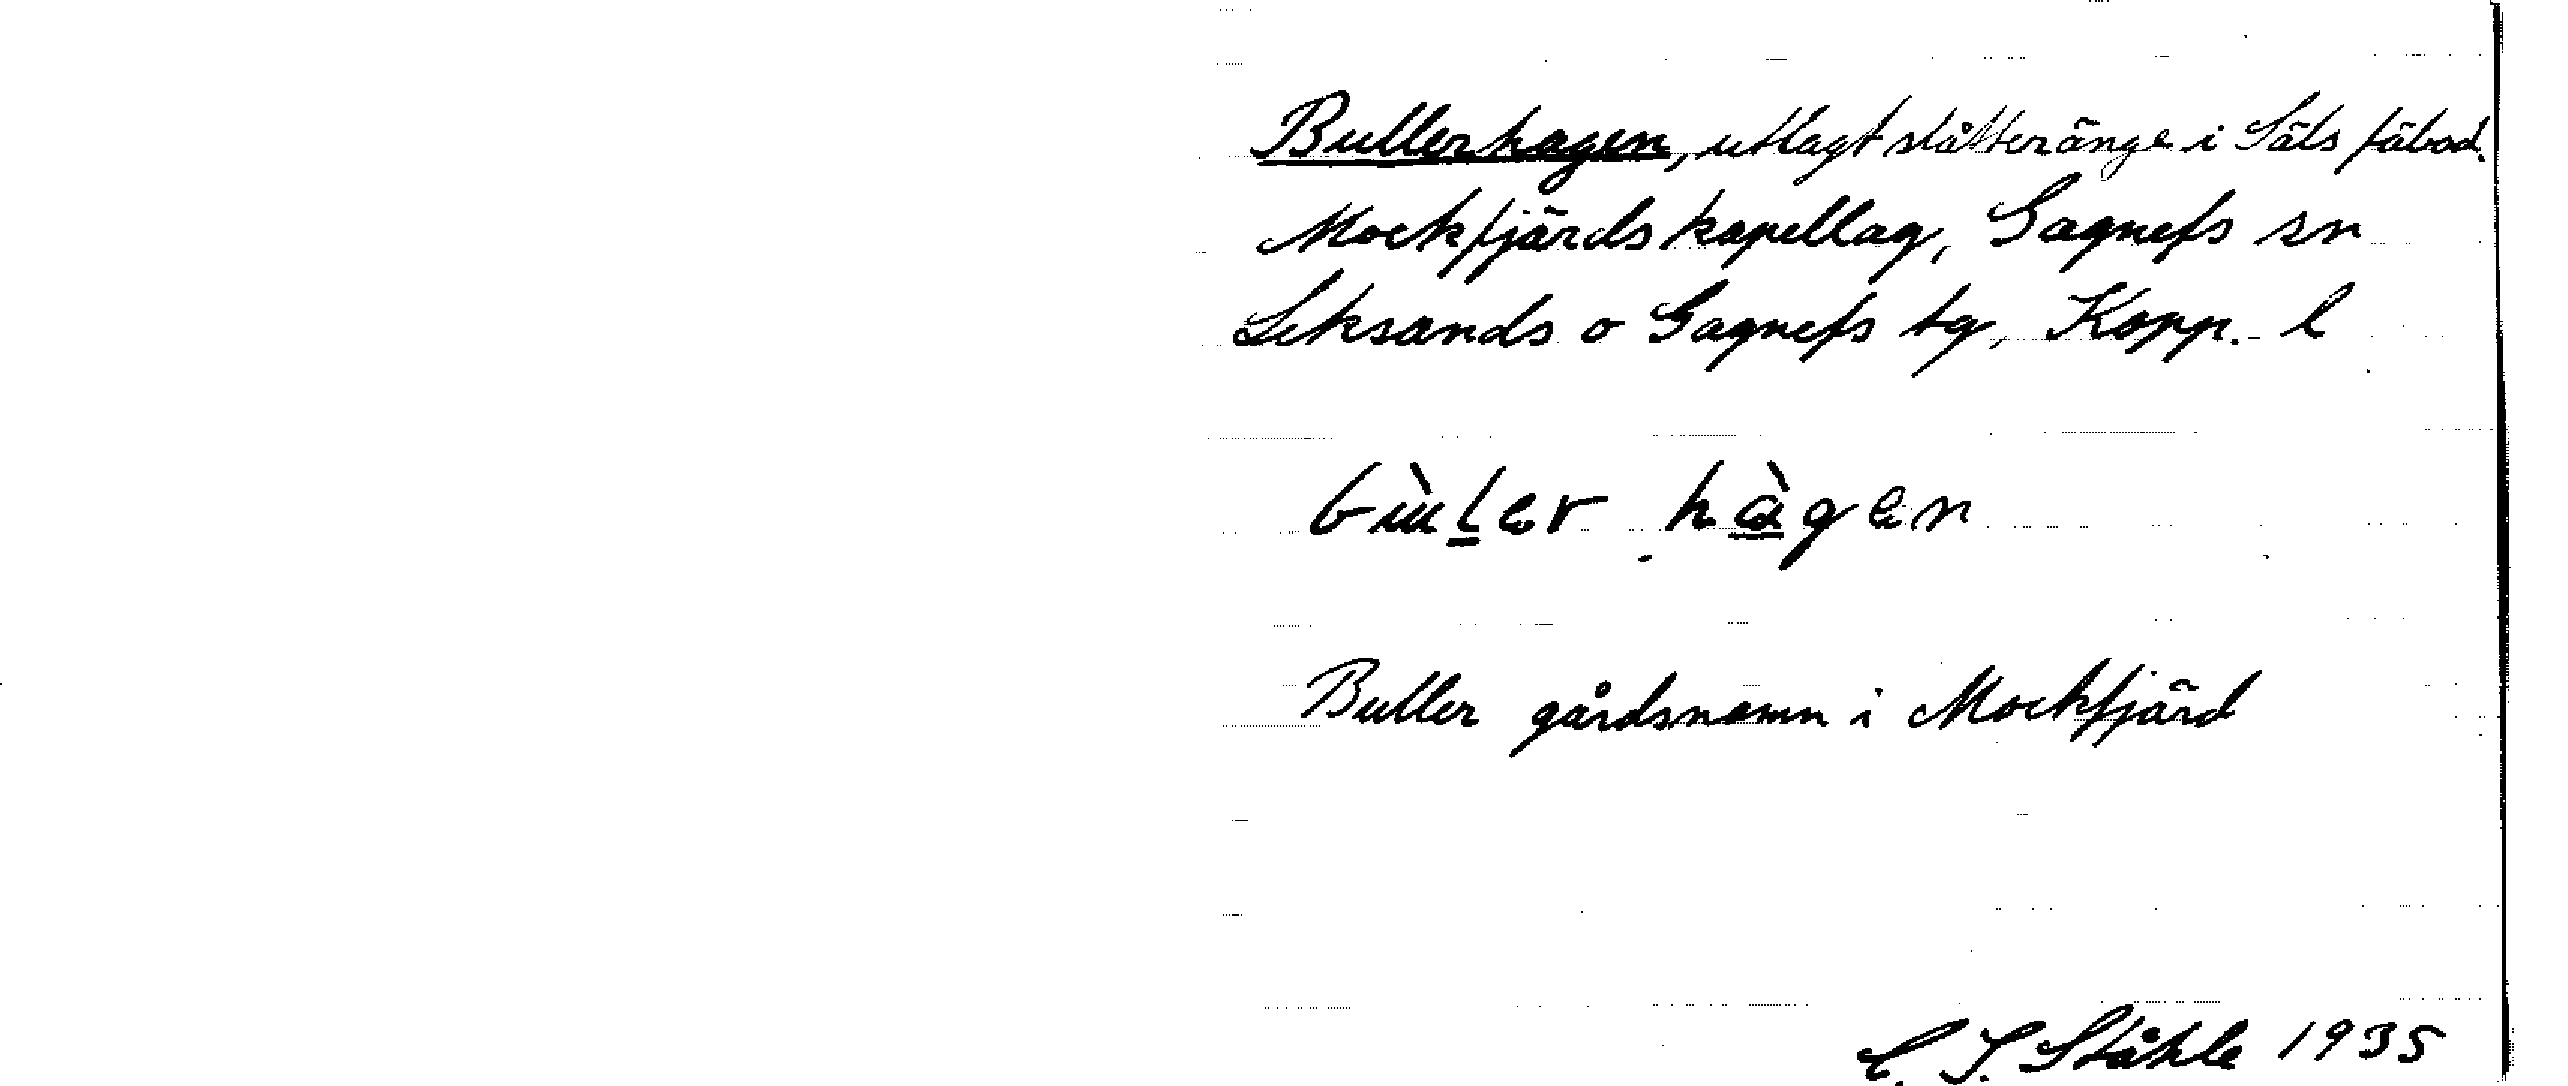 Bullerhagen, utlagt slåtteränge i Säls fäbod.
Mockfjärds kapellag, Gagnefs sn
Leksands o Gagnefs tg, Kopp. l
bùl̲er hà̲gen
Buller gårdsnamn i Mockfjärd
C. I. Ståhle 1935